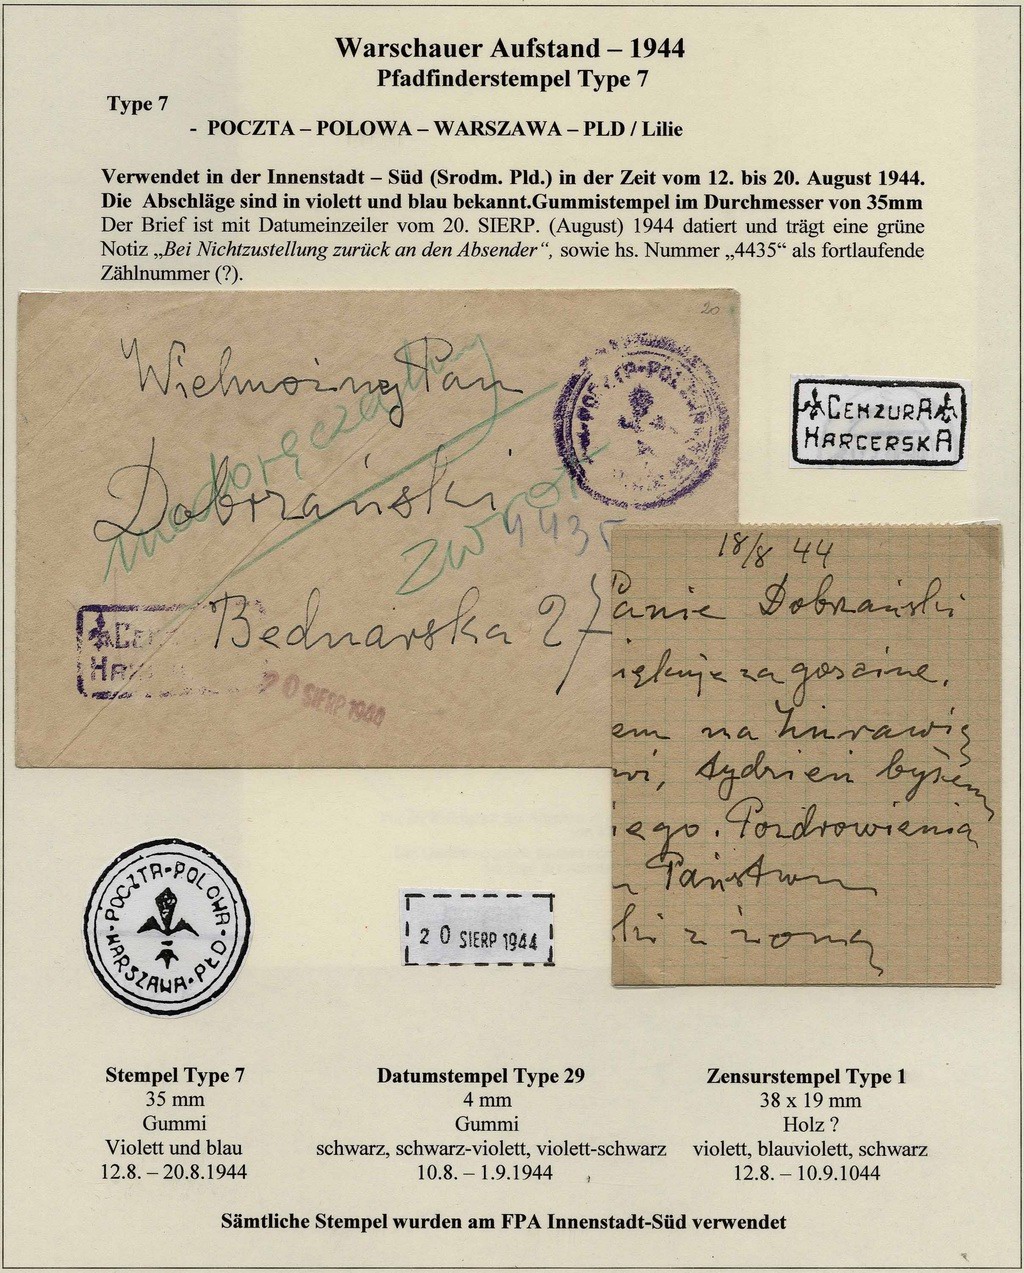 Warschauer Aufstand – 1944
Pfadfinderstempel Type 7
Type 7
- POCZTA – POLOWA – WARSZAWA – PLD / Lilie
Verwendet in der Innenstadt – Süd (Srodm. Pld.) in der Zeit vom 12. bis 20. August 1944.
Die Abschläge sind in violett und blau bekannt.Gummistempel im Durchmesser von 35mm
Der Brief ist mit Datumeinzeiler vom 20. SIERP. (August) 1944 datiert und trägt eine grüne
Notiz „Bei Nichtzustellung zurück an den Absender“, sowie hs. Nummer „4435“ als fortlaufende
Zählnummer (?).
20
Wielmożny Pan
Dobrzański
Bednarska 27
zwrot
4435
POCZTA-POLOWA
CENZURA
HARCERSKA
20 SIERP 1944
18/8 44
Panie Dobrzański
za gościnę,
na Żurawią
tydzień byłem
iego. Pozdrowienia
Państwu
z żoną
POCZTA-POLOWA-
WARSZAWA-PŁD
20 SIERP 1944
Stempel Type 7
35 mm
Gummi
Violett und blau
12.8. – 20.8.1944
Datumstempel Type 29
4 mm
Gummi
schwarz, schwarz-violett, violett-schwarz
10.8. – 1.9.1944
Zensurstempel Type 1
38 x 19 mm
Holz ?
violett, blauviolett, schwarz
12.8. – 10.9.1044
Sämtliche Stempel wurden am FPA Innenstadt-Süd verwendet